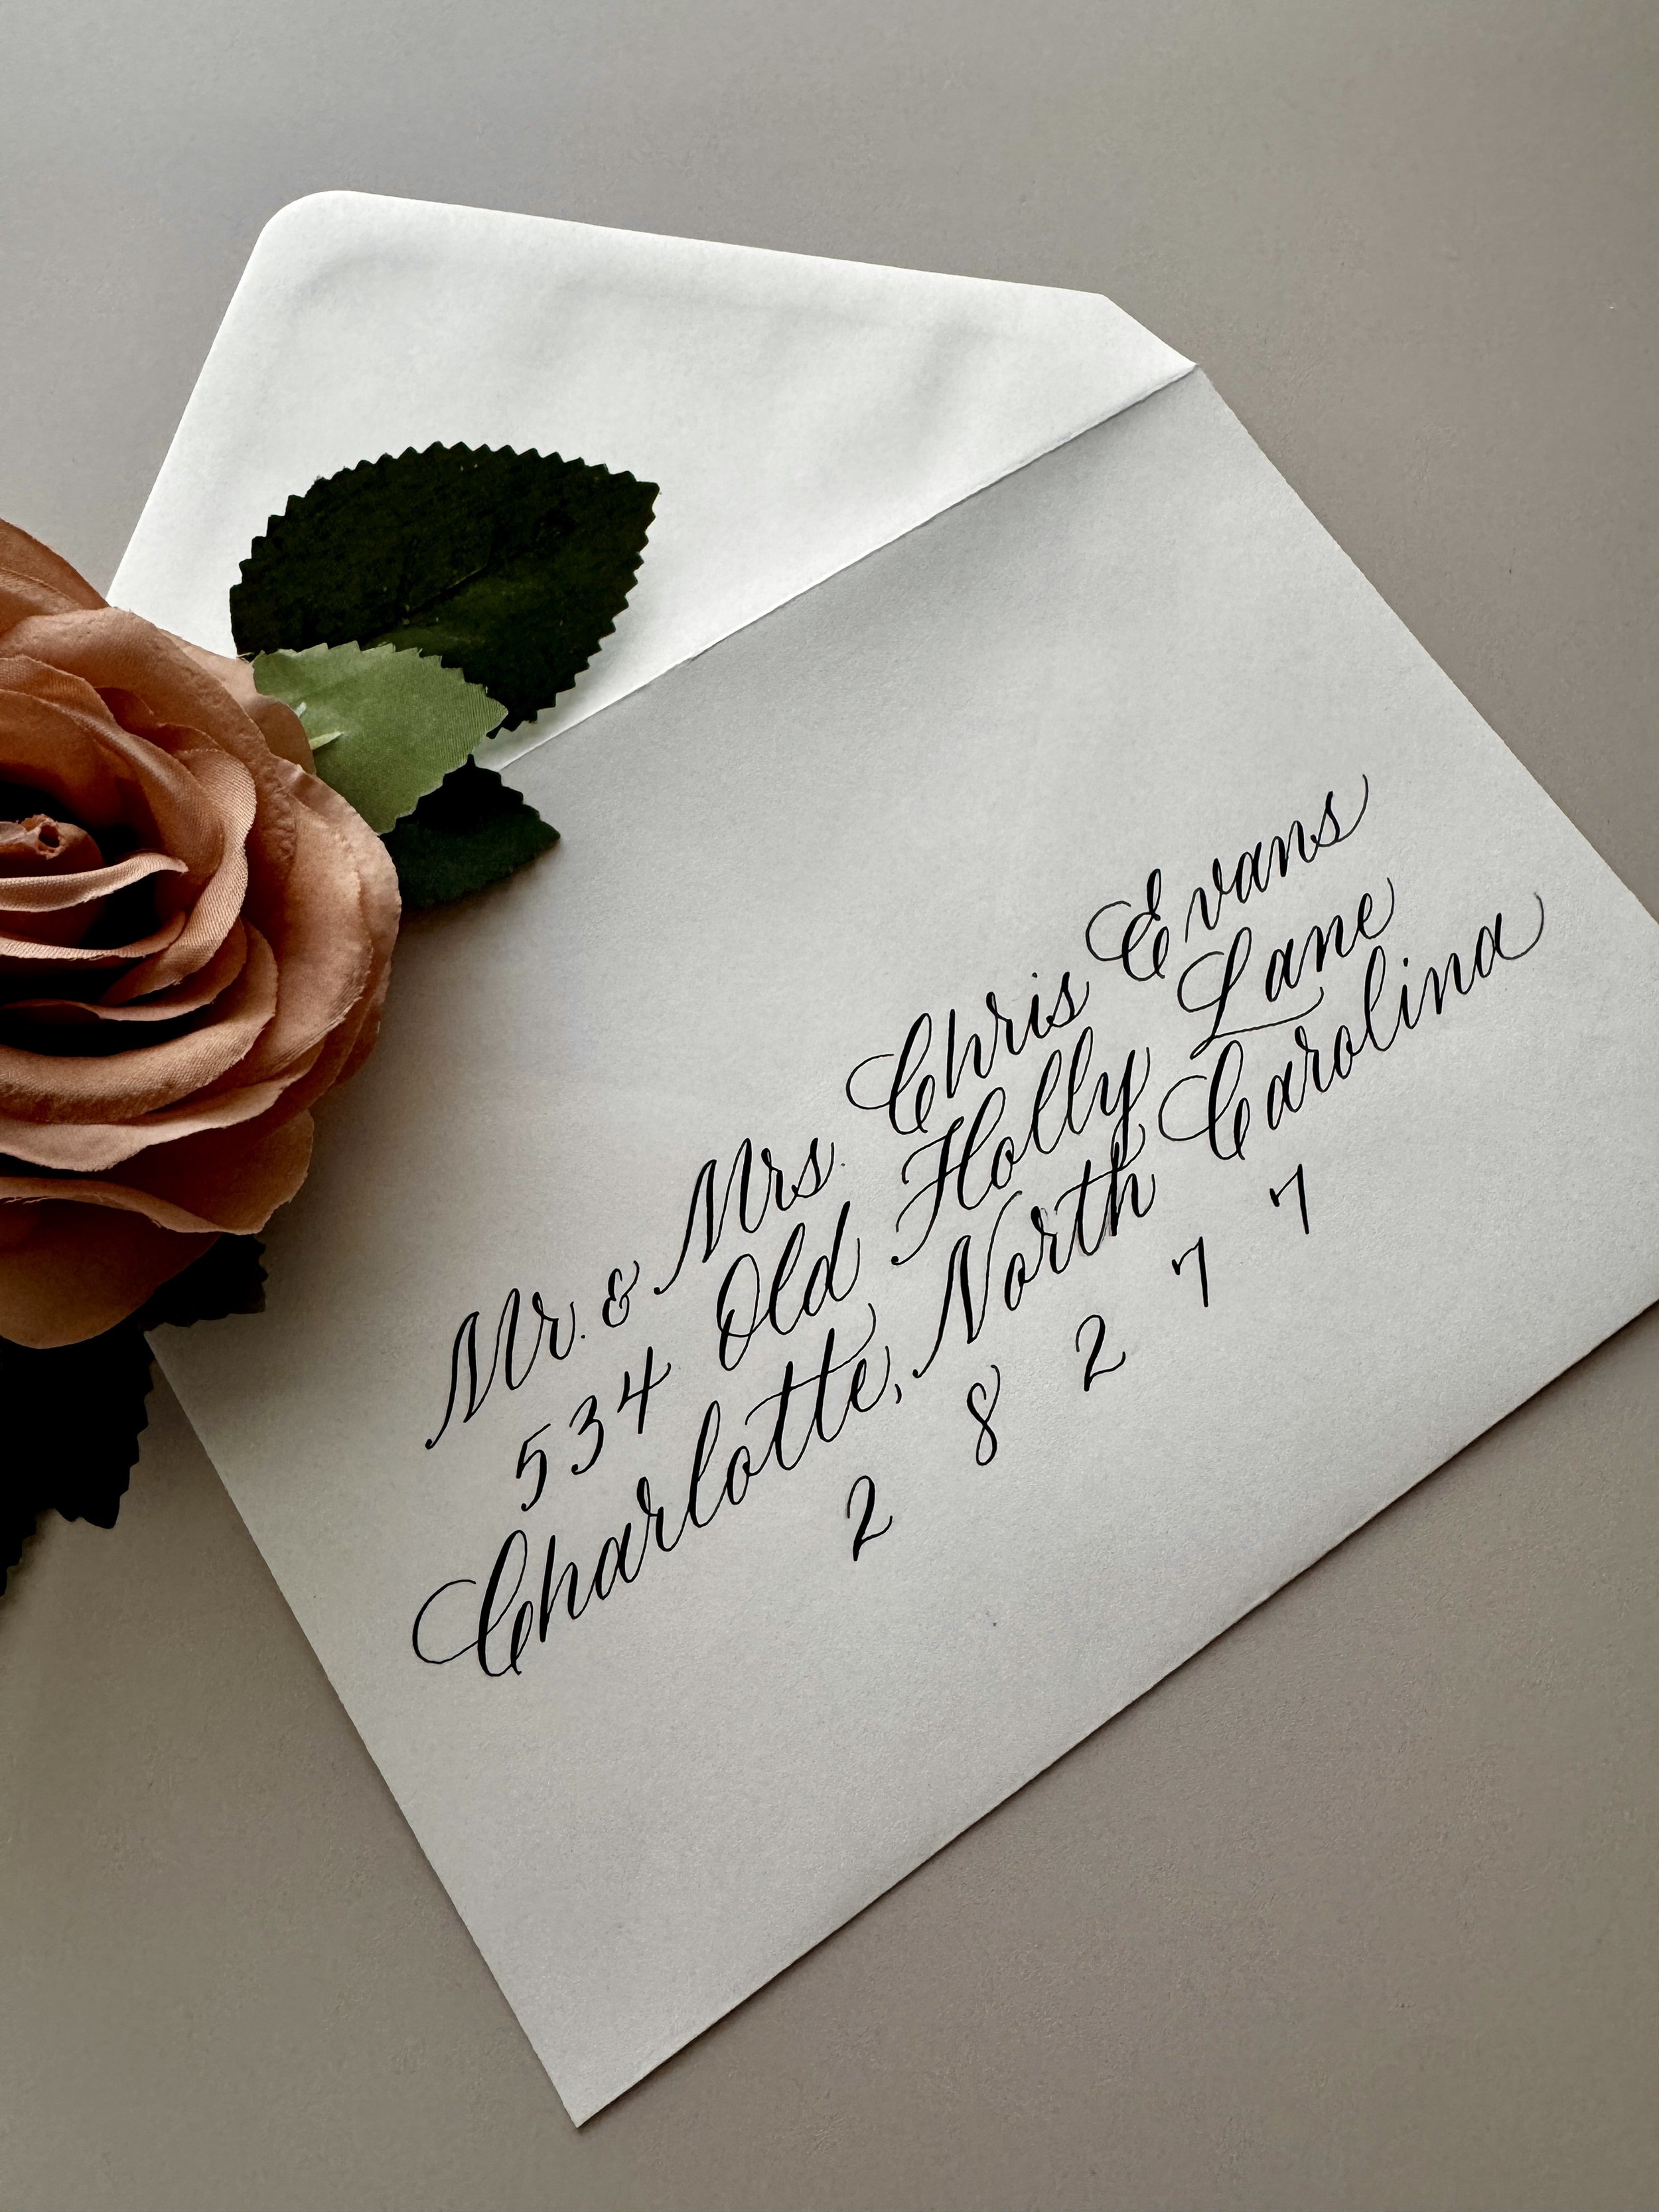 Mr. & Mrs. Chris Evans
534 Old Holly Lane
Charlotte, North Carolina
2 8 2 7 7